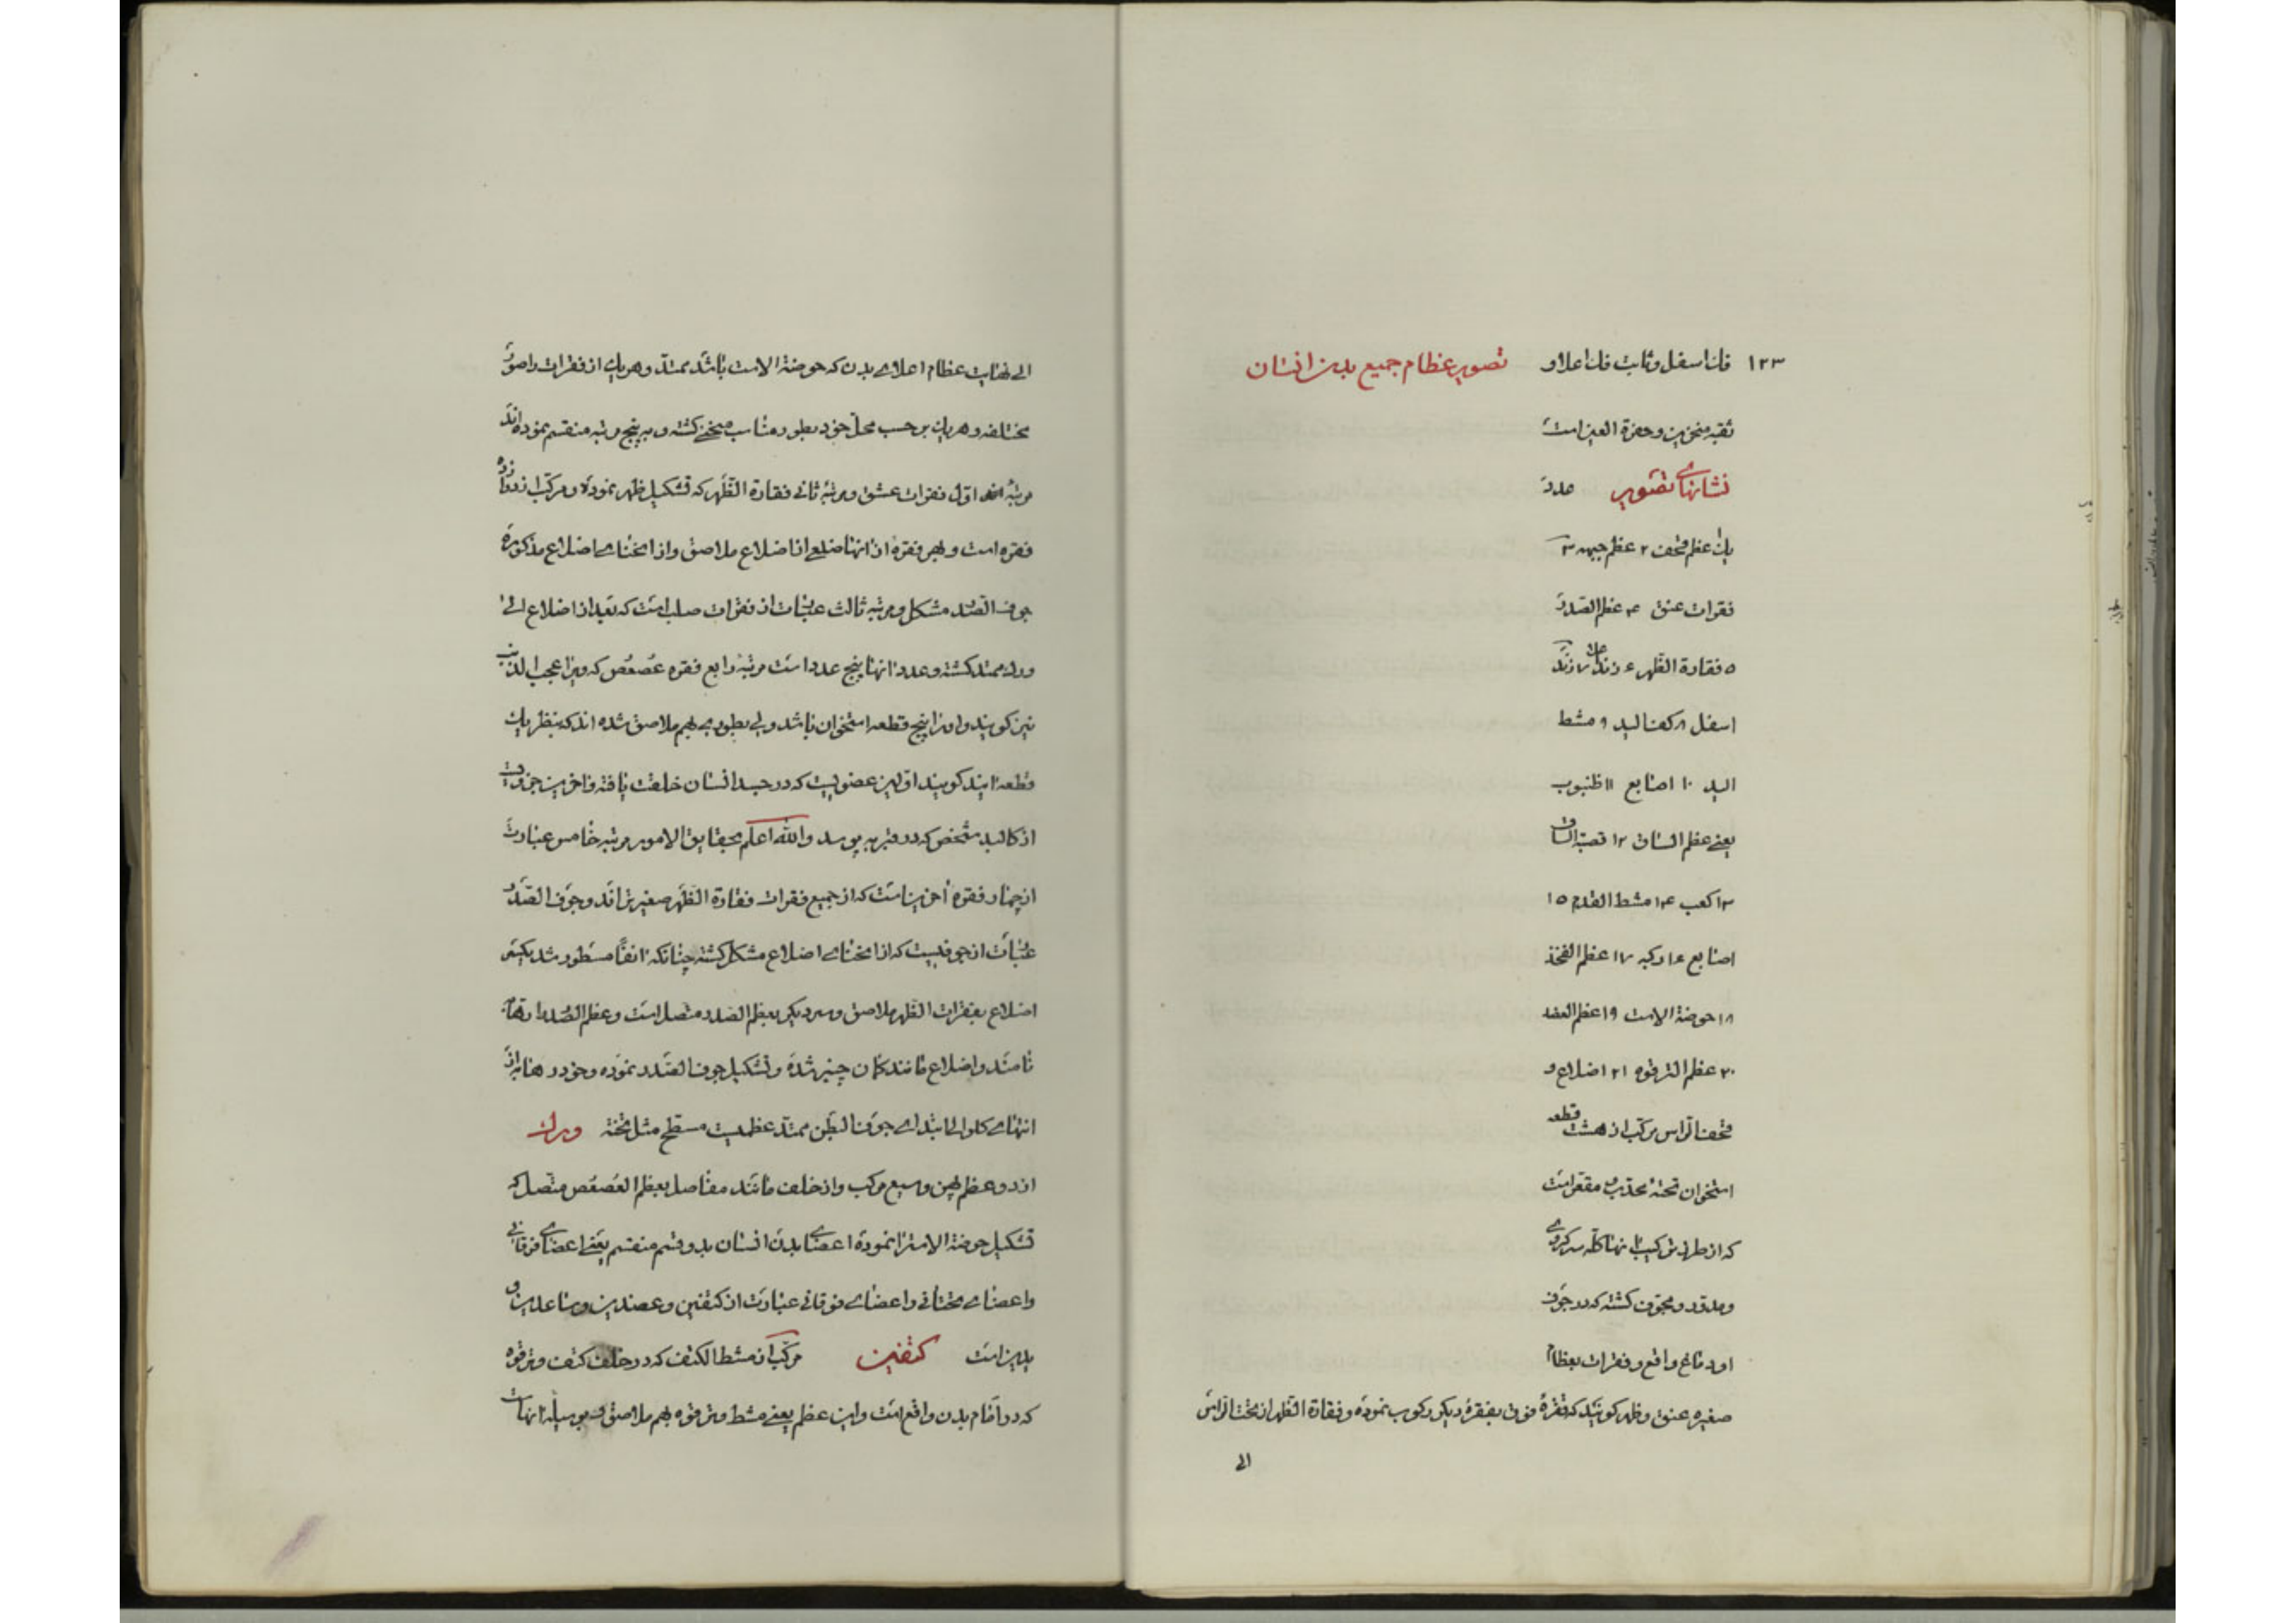 ۱۲۳ فک اسفل و ثابت فک اعلا و تصویر عظام جمیع بدن انسان
ثقبه منخرین و حفرة العین است
نشانهای تصویر عدد
یک عظم قحف ۲ عظم جبهه ۳
فقرات عنق ۴ عظم الصدر
۵ فقارة الظهر ۶ زند اعلی ۷ زند
اسفل ۸ کف الید ۹ مشط
الید ۱۰ اصابع ۱۱ ظنبوب
یعنی عظم الساق ۱۲ قصبة الساق
۱۳ کعب ۱۴ مشط القدم ۱۵
اصابع ۱۶ رکبه ۱۷ عظم الفخذ
۱۸ حوضة الامت ۱۹ عظم العضد
۲۰ عظم الترقوه ۲۱ اضلاع و
قحف الراس مرکب از هشت قطعه
استخوان تخته محدب و مقعر است
که از طریق ترکیب انها کله سر کروی
و مدور و مجوف کشته که در جوف
او دماغ واقع و فقرات بعظام
صغیره عنق و ظهر کویند که فقرهٔ فوق بفقرهٔ دیکر رکوب نموده و فقارة الظهر از تحت الراس
الی
الی نهایت عظام اعلای بدن که حوضة الامت باشد ممتد و هر یک از فقرات را صور
مختلفه و هر یک بر حسب محل خود بطور مناسب منحنی کشته و به پنج مرتبه منقسم نموده اند
مرتبهٔ اول فقرات عشق و مرتبهٔ ثانی فقارة الظهر که تشکیل ظهر نموده و مرکب از دوازده
فقره است و بهر فقرهٔ از انها ضلعی از اضلاع ملاصق و از انحنای اضلاع مذکوره
جوف الصدر مشکل و مرتبه ثالث عبارت از فقرات صلب است که بعد از اضلاع الی
ورک ممتد کشته و عدد انها پنج عدد است مرتبهٔ رابع فقره عُصعُص که ویرا عجب الذنب
نیز کویند و او را پنج قطعه استخوان باشد ولی بطوری بهم ملاصق شده اند که بنظر یک
قطعه ایند کویند اولین عضویست که در جسد انسان خلقت یافته و اخرین جزویست
از کالبد شخص که در قبر به پوسد والله اعلم بحقایق الامور مرتبه خامس عبارت
از چهار فقره اخرین است که از جمیع فقرات فقارة الظهر صغیرتر اند و جوف الصدر
عبارت از جوفیست که از انحنای اضلاع مشکل کشته چنانکه انفًا مسطور شد یکسر
اضلاع بفقرات الظهر ملاصق و سر دیکر بعظم الصدر متصل است و عظم الصدر را رهابه
نامند و اضلاع مانند کمان چنبر شده و تشکیل جوف الصدر نموده و خود رهابه از
انتهای کلو الی ابتدای جوف البطن ممتد عظمیست مسطح مثل تخته ورک
از دو عظم پهن وسیع مرکب و از خلف مانند مفاصل بعظم العُصعُص متصل که
تشکیل حوضة الامت را نموده اعضای بدن انسان بدو قسم منقسم یعنی اعضای فوقانی
و اعضای تحتانی و اعضای فوقانی عبارت از کتفین و عضدین و ساعدین و
یدین است کتفین مرکب از مشط الکتف که در خلف کتف و ترقوه
که در اقدام بدن واقع است و این عظم یعنی مشط و ترقوه بهم ملاصق و بوسیله انهاست